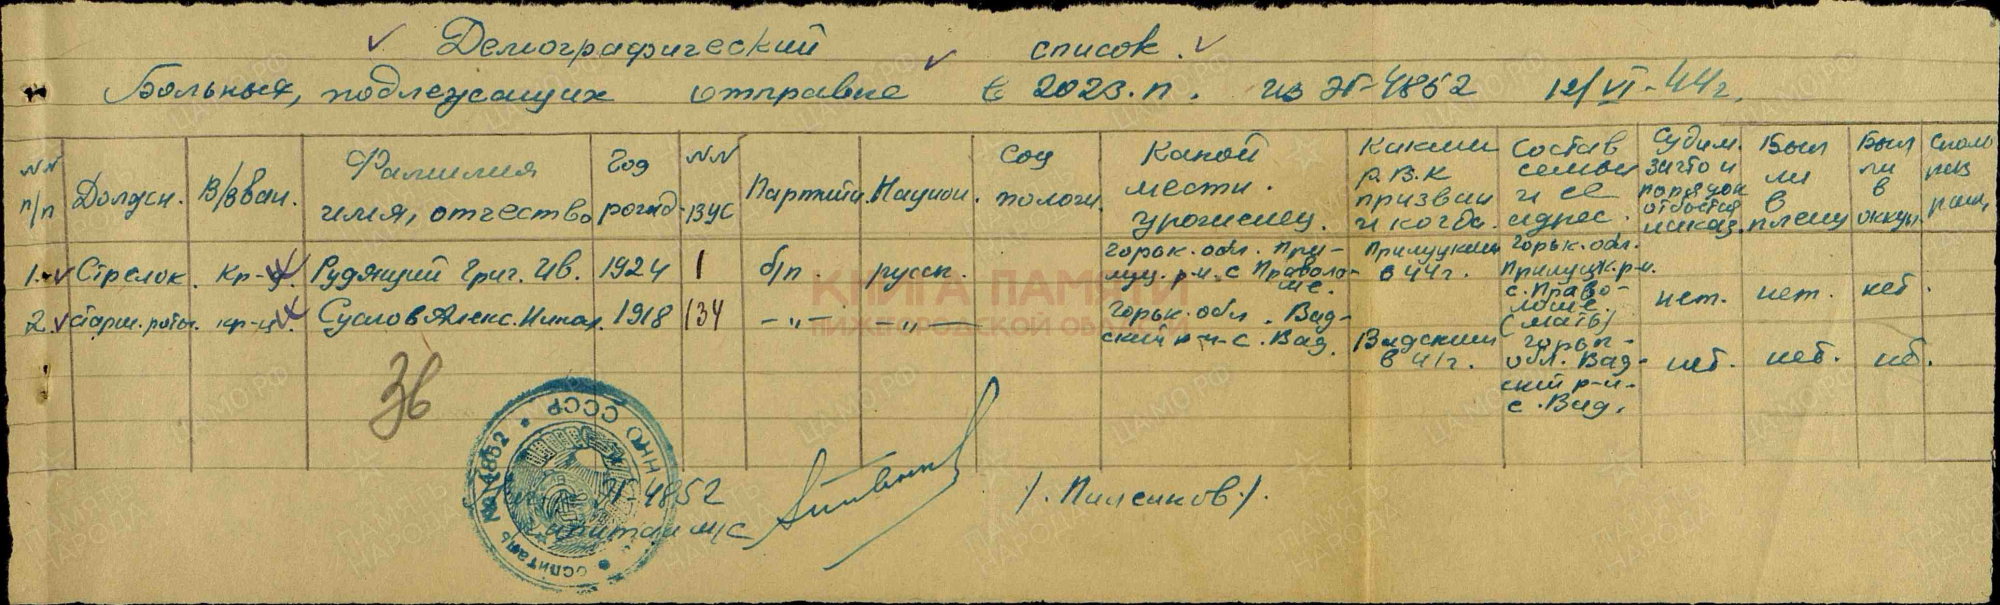 Демографический список.
Больных, подлежащих отправке в 202 з.п. из ЭГ-4852 12/VI-44г.
NN п/п
Должн.
В/зван.
Фамилия имя, отчество
Год рожд.
NN ВУС
Партийн.
Национ.
Соц
Какой местн. уроженец.
Каким Р.В.К призван и когда.
Состав семьи и её адрес.
Судим. за что и порядок отбытия наказ.
Был ли в плену
Был ли в оккуп.
Сколько раз ран.
1. Стрелок. кр-ц. Рудящий Григ. Ив. 1924 1 б/п. русск. Горьк. обл. При- луц. р-н. с Право- ло- ме. Прилуцким в 44г. Горьк. обл. Прилуцк. р-н. с. Право- ломе. (мать) нет. нет. нет.
2. старш. роты. кр-ц. Суслов Алекс. Никол. 1918 134 -"- -"- Горьк. обл. Вад- ский р-н-с. Вад. Вадским в 41г. Горьк- обл. Вад- ский р-н- с. Вад. нет. нет. нет.
36
НКО СССР
Госпиталь № 4852
ЭГ-4852
капитан м/с
/. Пилсиков./.
КНИГА ПАМЯТИ
НИЖЕГОРОДСКОЙ ОБЛАСТИ
ПАМЯТЬ НАРОДА
ЦАМО.РФ